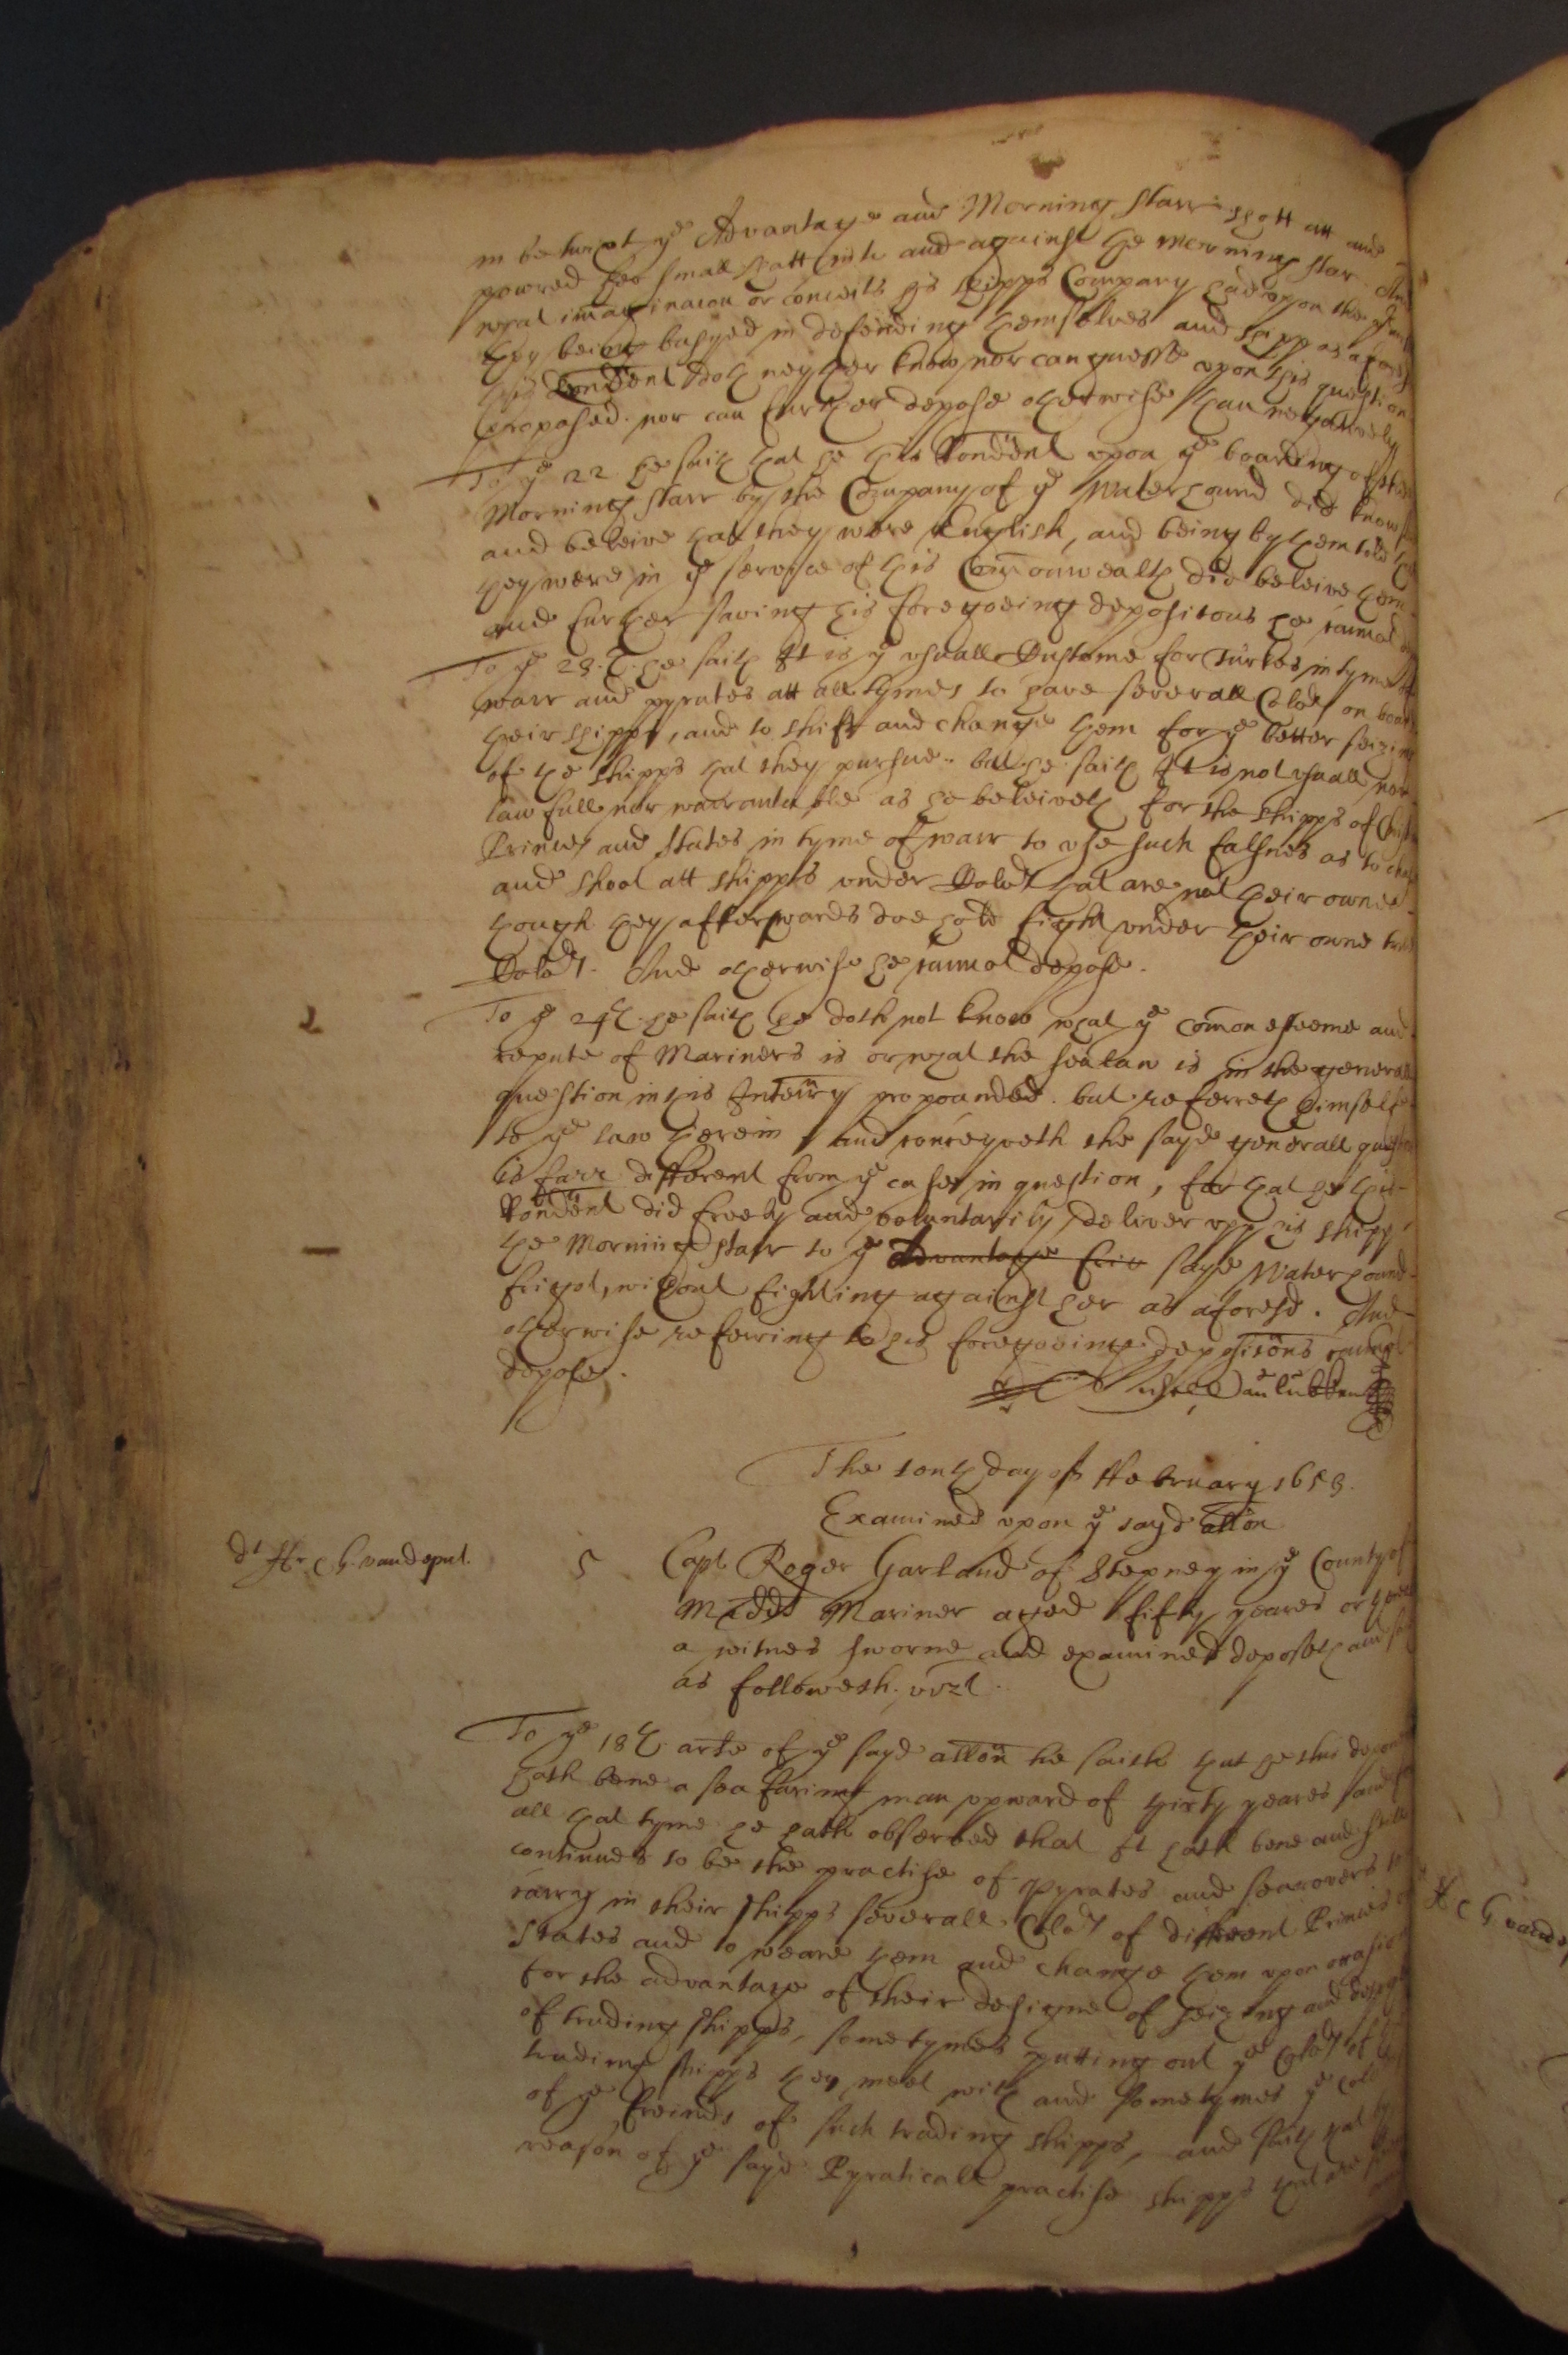 in betwixt ye Advantage and Morning Starr shott att and
powred her small shott into and against the Morning Star. And
what imaginacon or conceits his shipps Company had upon the same
they being busyed in defending themselves and shipp as aforesd
this Rendent doth neyther know nor can guesse upon this question
proposed. nor can further depose otherwise than negatively
To ye 22 he saith that he this Rondent upon ye boarding of the
Morning Starr by the Company of ye Waterhound did know
and beleive that they were English, and being by them told that
they were in ye service of this Comonwealth did beleive them
and further saving his foregoeing deposicons he cannot
To ye 23.th he saith It is ye usuall Custome for Turkes in tyme of
warr and pyrates att all tymes to have severall Colors on board
their shipps, and to shift and change them for ye better seizing
of the shipps that they pursue. but he saith It is not usuall nor
lawfull nor warrantable as he beleiveth for the shipps of
Princes and States in tyme of warr to use such falsnes as to
and shoot att shipps under Colors that are not their owne
though they afterwards doe hold fight under their owne true
Colors. And otherwise he cannot depose.
To ye 24th he saith he doth not know what ye comon esteeme and
repute of Mariners is or what the sea law is in the generall
question in this Interry propounded. but referreth himselfe
to ye law therein and conceyveth the sayd generall question
is farr different from ye case in question, for that he this
Rondent did freely and voluntarily deliver upp his shipp
the Morning Starr to ye Advantage fri sayd Waterhound
frigot, without fighting against her as aforesd. And
otherwise referring to his foregoeing deposicons cannot
depose.
The tenth day of ffebruary 1653.
Examined upon ye sayd allon
dt Hr C G. vandeput.
5 Capt Roger Garland of Stepney in ye County of
Middx Mariner aged fifty yeares or there
a witnes sworne and examined deposeth and
as followeth. vizt.
To ye 18th arle of ye sayd allon he saith that he this depont
hath bene a sea faring man upward of thirty yeares and
all that tyme he hath observed that It hath bene and still
continues to be the practise of pyrates and searovers to
carry in their shipps severall Colors of different Princes
States and to weare them and change them upon occasion
for the advantage of their designe of seizing and
of trading shipps, sometymes putting out ye Colors of
trading shipps they meet with and sometymes ye colors
of ye freinds of such trading shipps, and saith that by
reason of ye sayd Pyraticall practise shipps that are